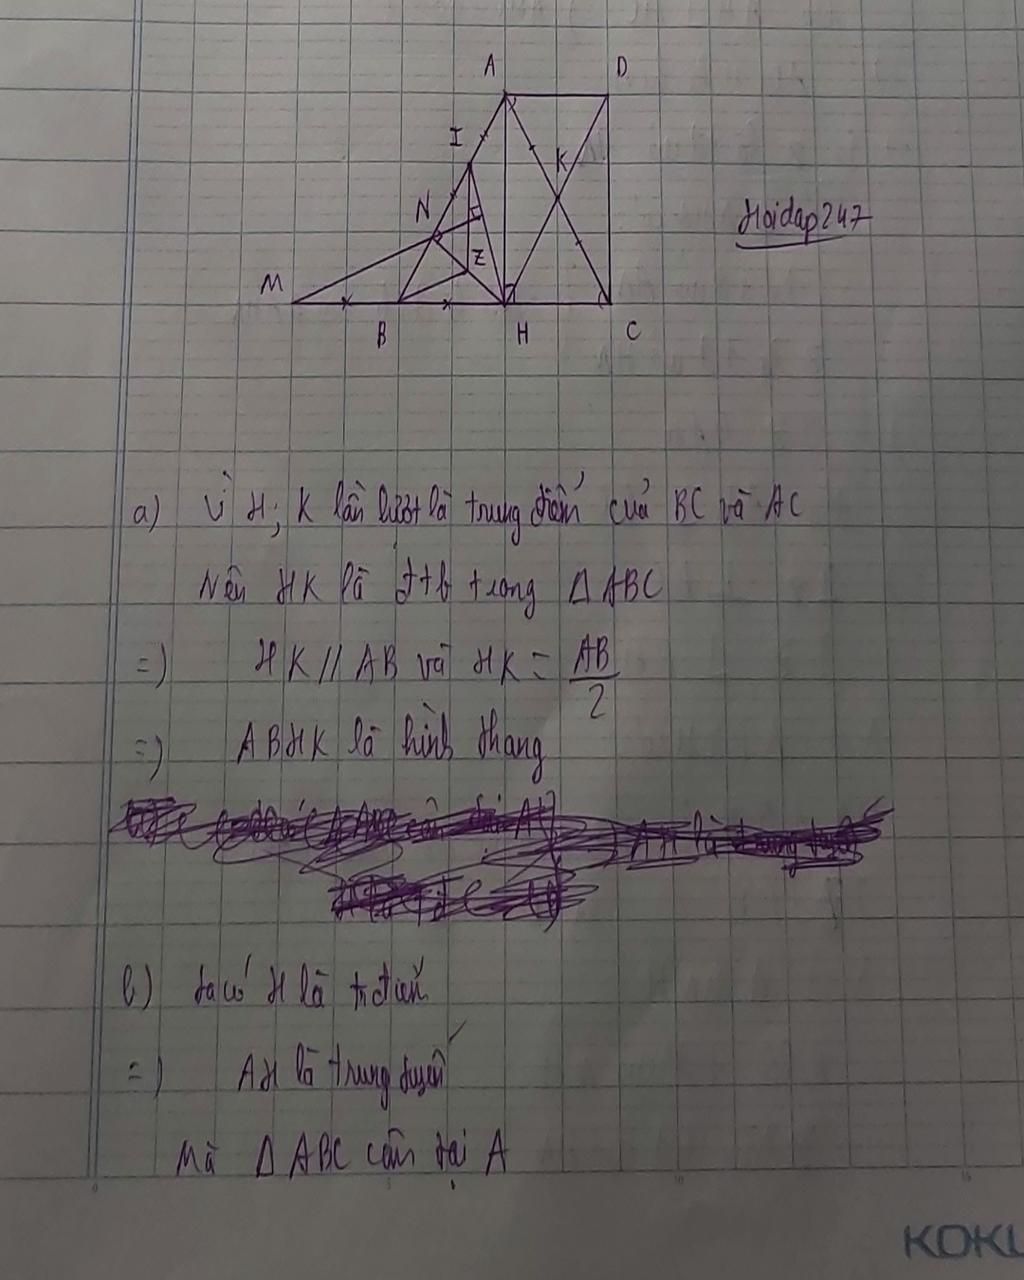 A D
I
K
N
Hoidap247
Z
M
B H C
a) Vì H; K lần lượt là trung điểm của BC và AC
Nên HK là đtb trong Δ ABC
=) HK // AB và HK = AB/2
=) ABHK là hình thang
b) Ta có H là tr điểm
=) AH là trung tuyến
Mà Δ ABC cân tại A
KOKU